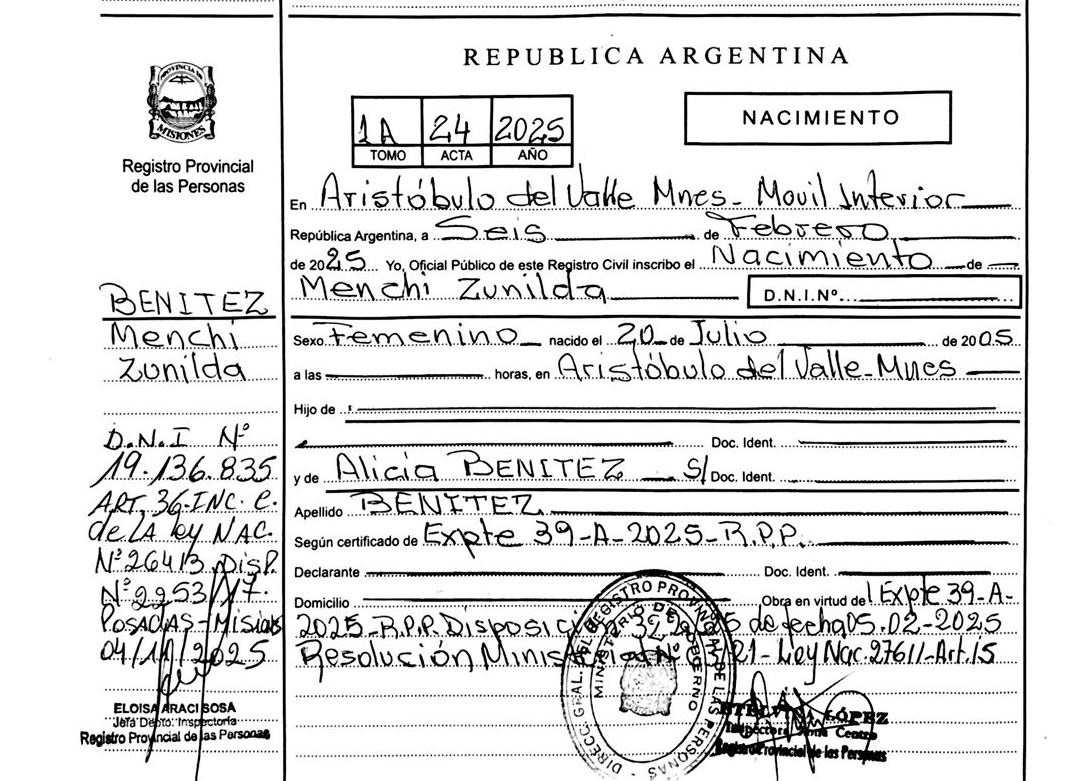 REPUBLICA ARGENTINA
PROVINCIA DE
MISIONES
Registro Provincial
de las Personas
1A 24 2025
TOMO ACTA AÑO
NACIMIENTO
En Aristóbulo del Valle Mnes - Movil Interior
República Argentina, a Seis de Febrero
de 2025 Yo, Oficial Público de este Registro Civil inscribo el Nacimiento de
Menchi Zunilda D.N.I.Nº
Sexo Femenino nacido el 20 de Julio de 2005
a las horas, en Aristóbulo del Valle - Mnes
Hijo de
Doc. Ident.
y de Alicia BENITEZ S/ Doc. Ident.
Apellido BENITEZ
Según certificado de Expte 39-A-2025-R.P.P.
Declarante Doc. Ident.
Domicilio Obra en virtud de Expte 39-A-
2025-R.P.P. Disposición 32 de fecha 05.02-2025
Resolución Nº 21 - Ley Nac. 27611 - Art. 15
BENITEZ
Menchi
Zunilda
D.N.I Nº
19.136.835
ART. 36-INC. C.
de LA ley NAC.
Nº 26413 Disp.
Nº 2253/17.
POSADAS - Misiones
04/11/2025
ELOISA ARACI SOSA
Jefa Depto. Inspectoría
Registro Provincial de las Personas
DIRECC. GRAL. DEL REGISTRO PROVINCIAL DE LAS PERSONAS
MINISTERIO DE GOBIERNO
LÓPEZ
Inspectora Zona Centro
Registro Provincial de las Personas